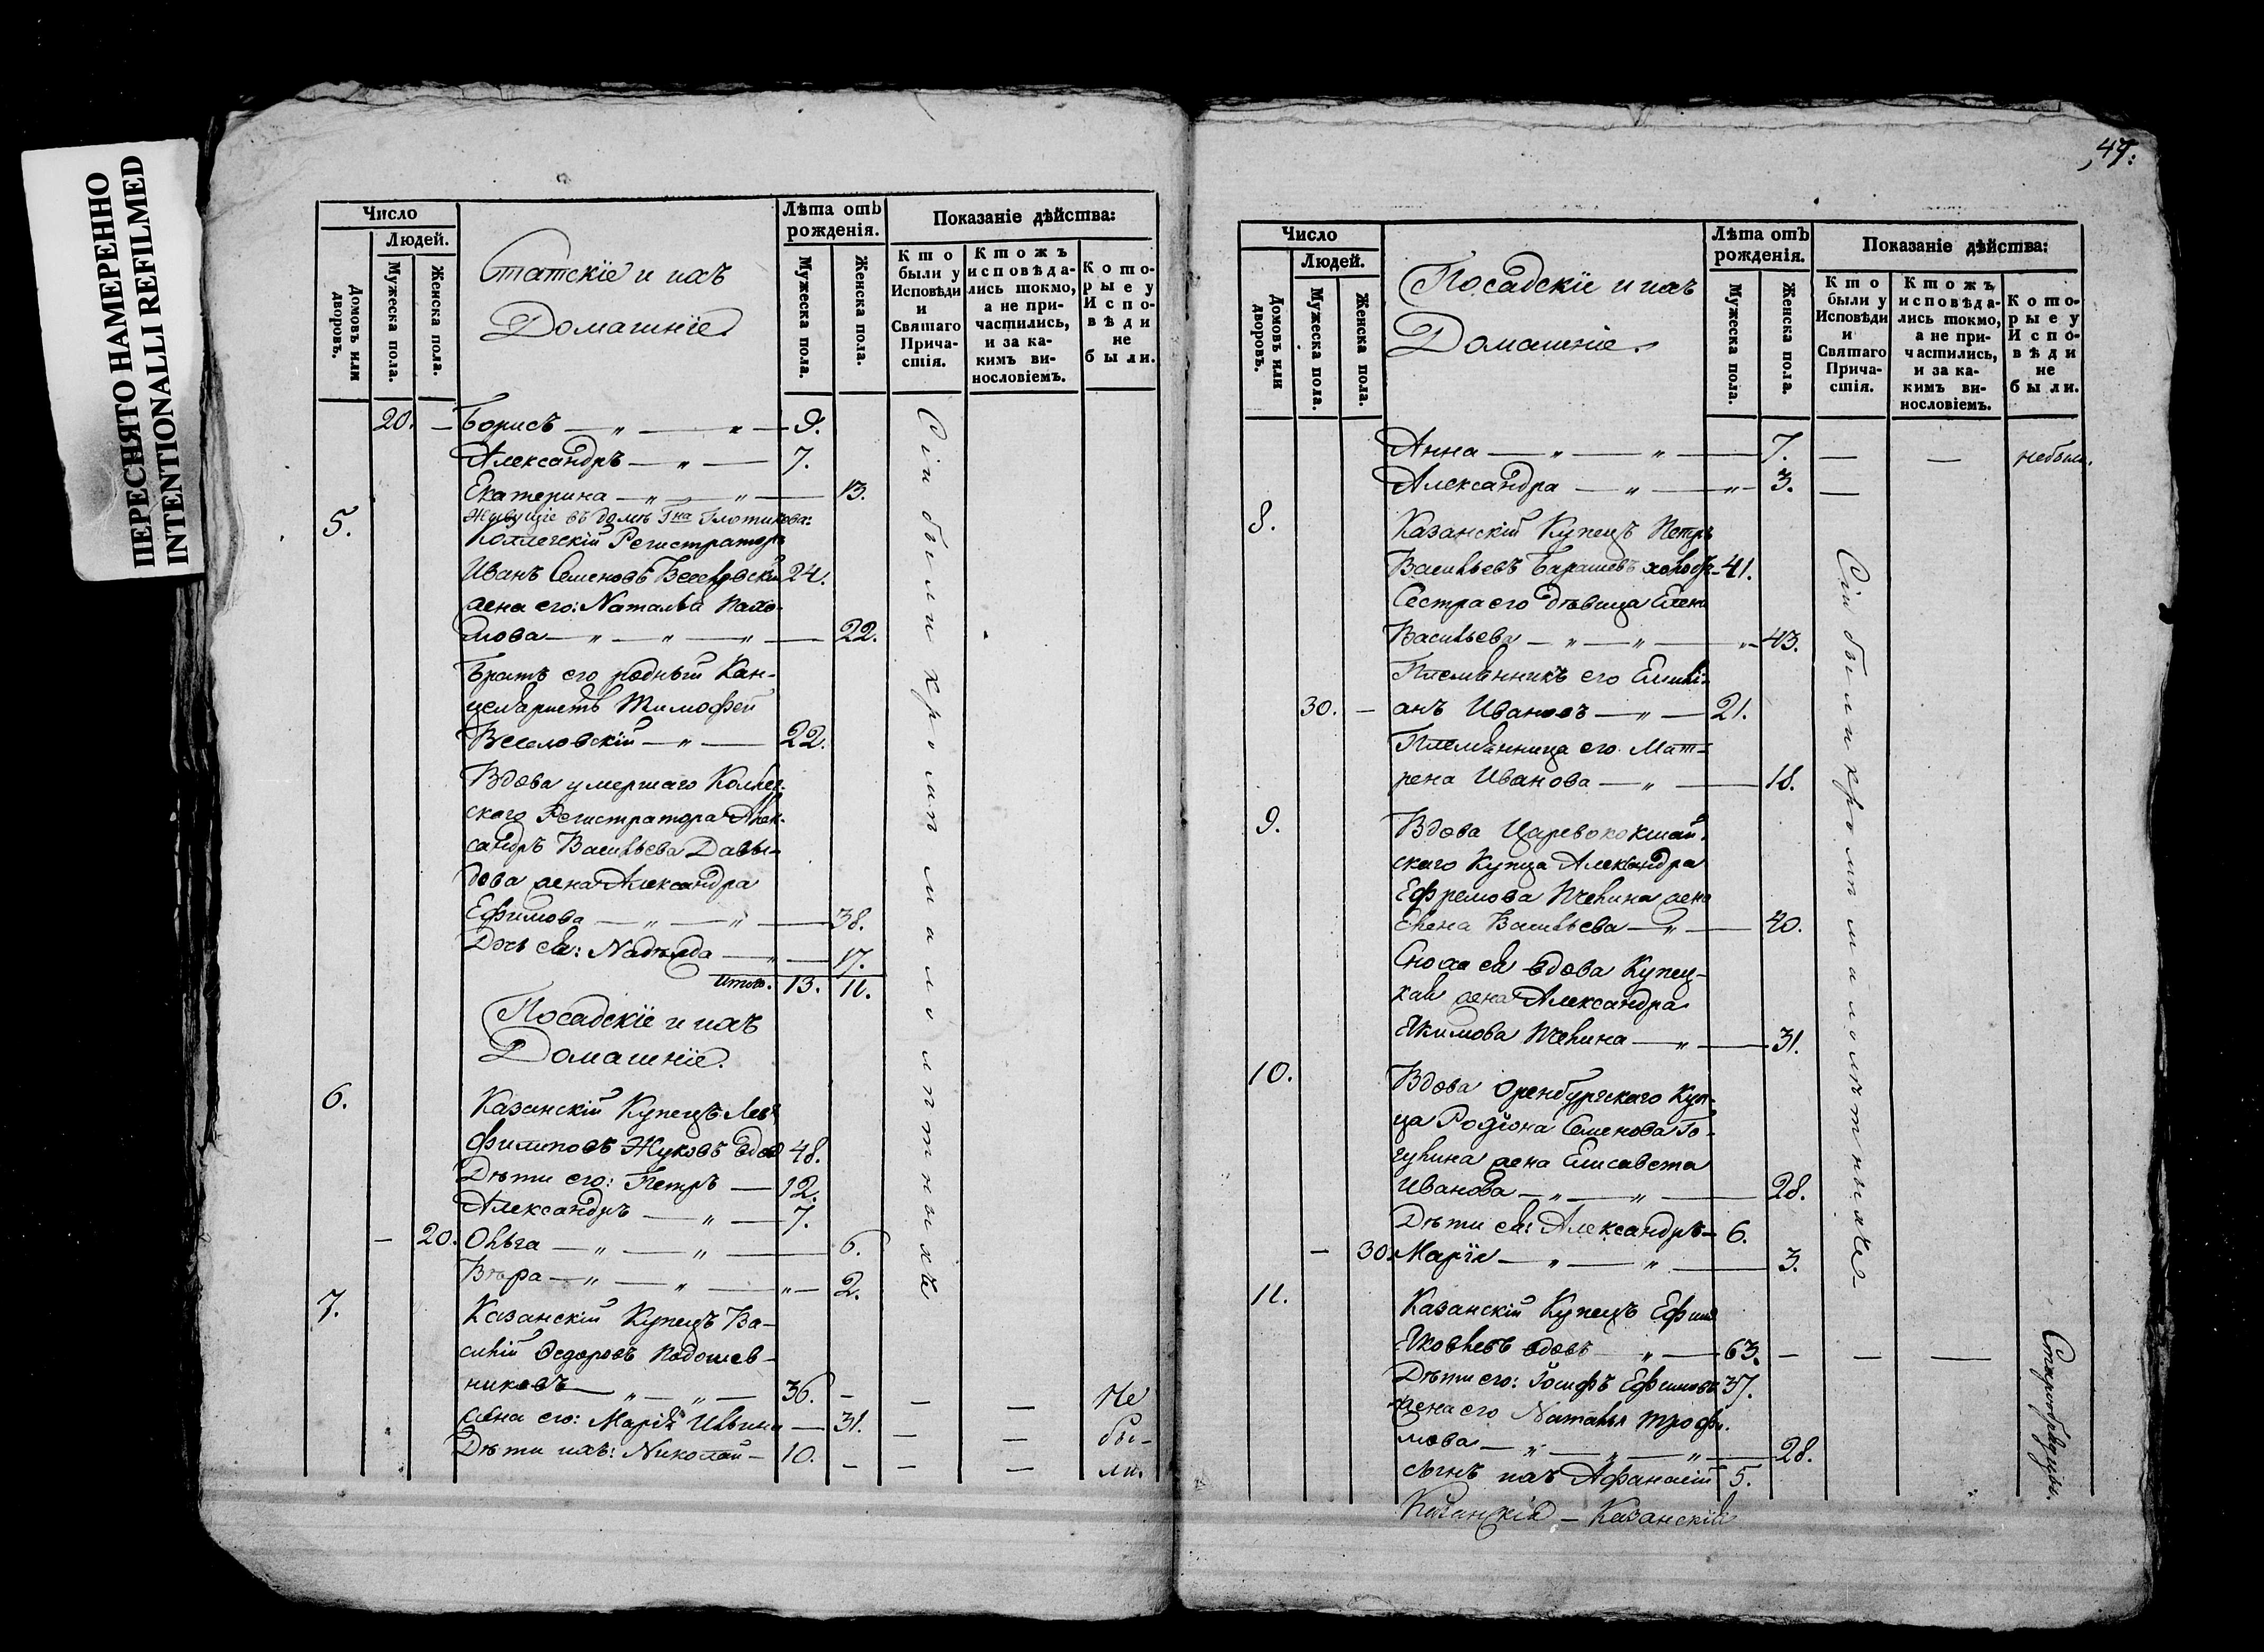 ПЕРЕСНЯТО НАМЕРЕННО
INTENTIONALLI REFILMED
Число
Людей.
Домовъ или дворовъ.
Мужеска пола.
Женска пола.
Статскіе и ихъ
Домашніе.
Лѣта отъ рожденія.
Мужеска пола.
Женска пола.
Показаніе дѣйства:
Кто были у Исповѣди и Святаго Причастія.
Ктожъ исповѣдались токмо, а не причастились, и за какимъ винословіемъ.
Которые у Исповѣди не были.
20. — Борисъ — „ — „ — 9.
Александръ — „ — 7.
Екатерина — „ — „ — 13.
5. Живущіе въ домѣ Гна
Коллегскій Регистраторъ
Иванъ Семеновъ Веселовскій 24.
жена его: Наталья Пахо-
мова — „ — „ — „ — 22.
Братъ его родный Кан-
целяристъ Тимофей
Веселовскій — „ — 22.
Вдова умершаго Коллег-
скаго Регистратора Алек-
сандръ Васильева Давы-
дова жена Александра
Ефимова — „ — „ — 38.
Дочь ея: Надѣжда — „ — 17.
Итого. 13. 11.
Посадскіе и ихъ
Домашніе.
6. Казанскій Купецъ Левъ
Филиповъ Жуковъ вдов 48.
Дѣти его: Петръ — 12.
Александръ — „ — 7.
— 20. Ольга — „ — „ — 6.
Вѣра — „ — „ — „ — 2.
7. Казанскій Купецъ Ва-
силій Ѳедоровъ Подошев-
никовъ — „ — „ — 36. — — — Не
жена его: Марія Ильина — 31. — — бы-
Дѣти ихъ: Николай — 10. — — — ли.
Сіи были кромѣ малолѣтныхъ
47.
Число
Людей.
Домовъ или дворовъ.
Мужеска пола.
Женска пола.
Посадскіе и ихъ
Домашніе.
Лѣта отъ рожденія.
Мужеска пола.
Женска пола.
Показаніе дѣйства:
Кто были у Исповѣди и Святаго Причастія.
Ктожъ исповѣдались токмо, а не причастились, и за какимъ винословіемъ.
Которые у Исповѣди не были.
Анна — „ — „ — 7. — — небыли.
Александра — „ — „ — 3. —
8. Казанскій Купецъ Петръ
Васильевъ Барашевъ холостъ 41.
Сестра его дѣвица Елена
Васильева — „ — „ — „ — 43.
Племянникъ его Емили-
30. — анъ Ивановъ — „ — 21.
Племянница его Мат-
рена Иванова — „ — 18.
9. Вдова Царевококшай-
скаго Купца Александра
Ефремова Пчелина жена
Елена Васильева — „ — 40.
Сноха ея вдова Купец-
кая жена Александра
Якимова Пчелина — „ — 31.
10. Вдова Оренбургскаго Куп-
ца Родіона Семенова Го-
гулина жена Елисавета
Иванова — „ — „ — 28.
Дѣти ея: Александръ — 6.
— 30. Марія — „ — „ — 3.
11. Казанскій Купецъ Ефимъ
Яковлевъ вдовъ — „ — 63. — — —
Дѣти его: Іосифъ Ефимовъ 37.
жена его Наталья Трофи-
мова — „ — „ — „ — 28.
сынъ ихъ Афанасій 5.
Казанскія — Казанскій
Сіи были кромѣ малолѣтныхъ
Старообрядцы.